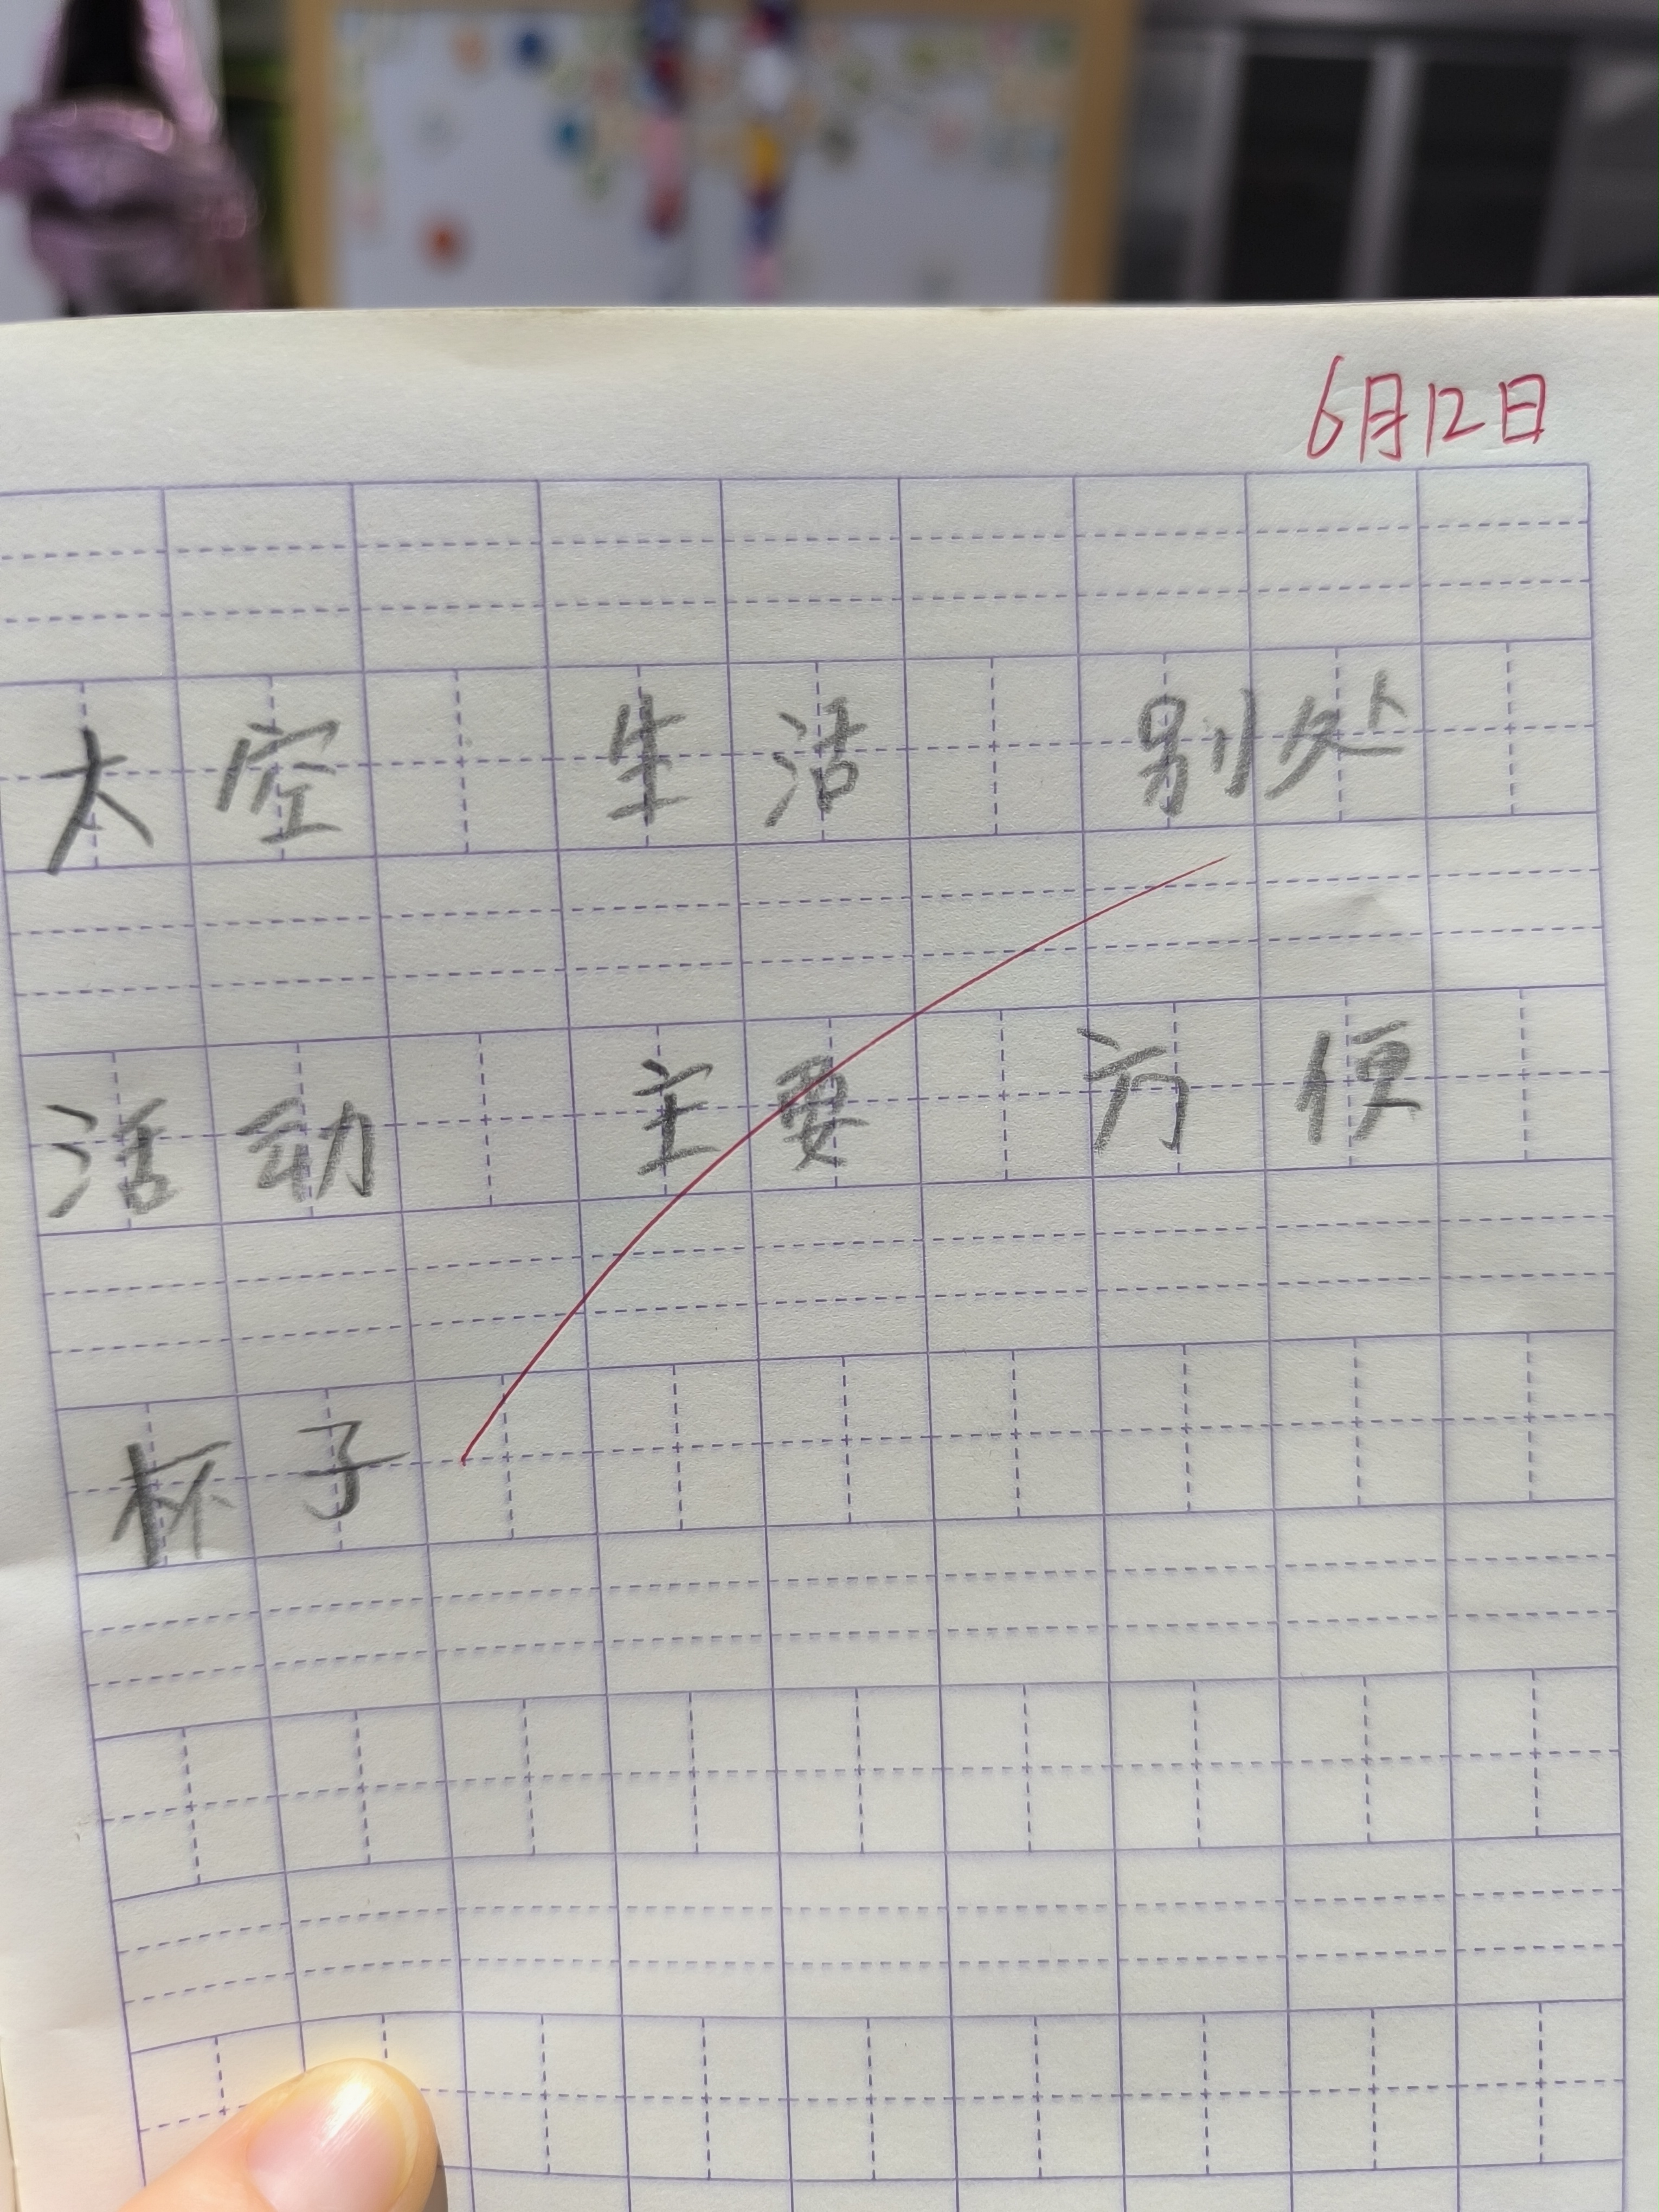 6月12日
太空 生活 别处
活动 主要 方便
杯子